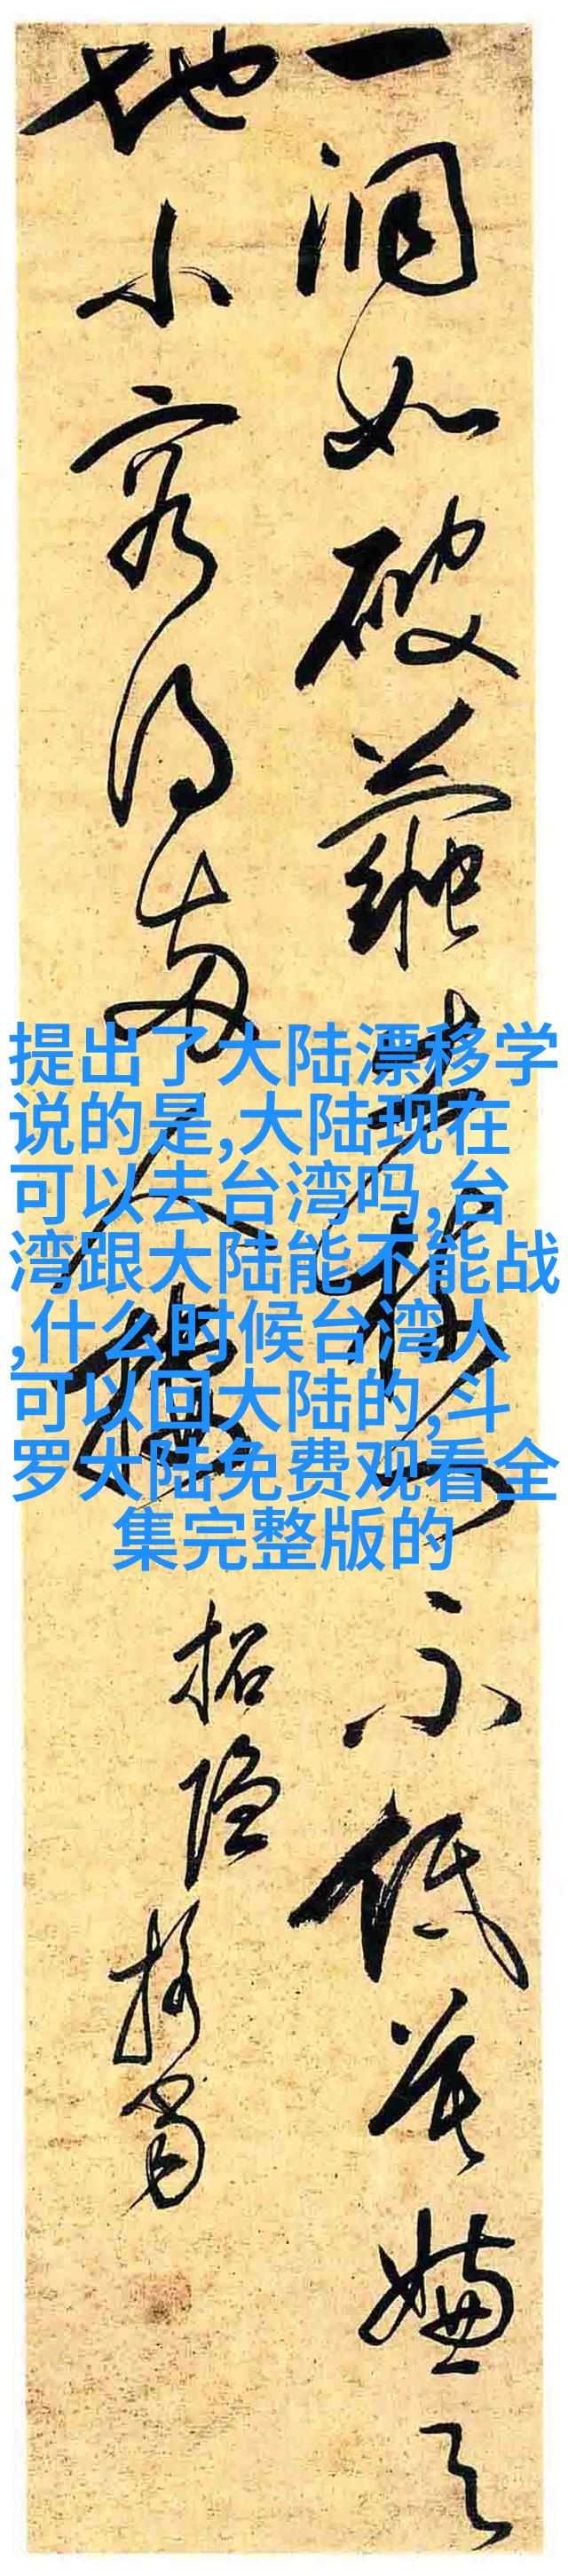 一洞如破
不低莫嫌天
地小容得兩人棲
招隱
提出了大陆漂移学
说的是,大陆现在
可以去台湾吗,台
湾跟大陆能不能战
,什么时候台湾人
可以回大陆的,斗
罗大陆免费观看全
集完整版的